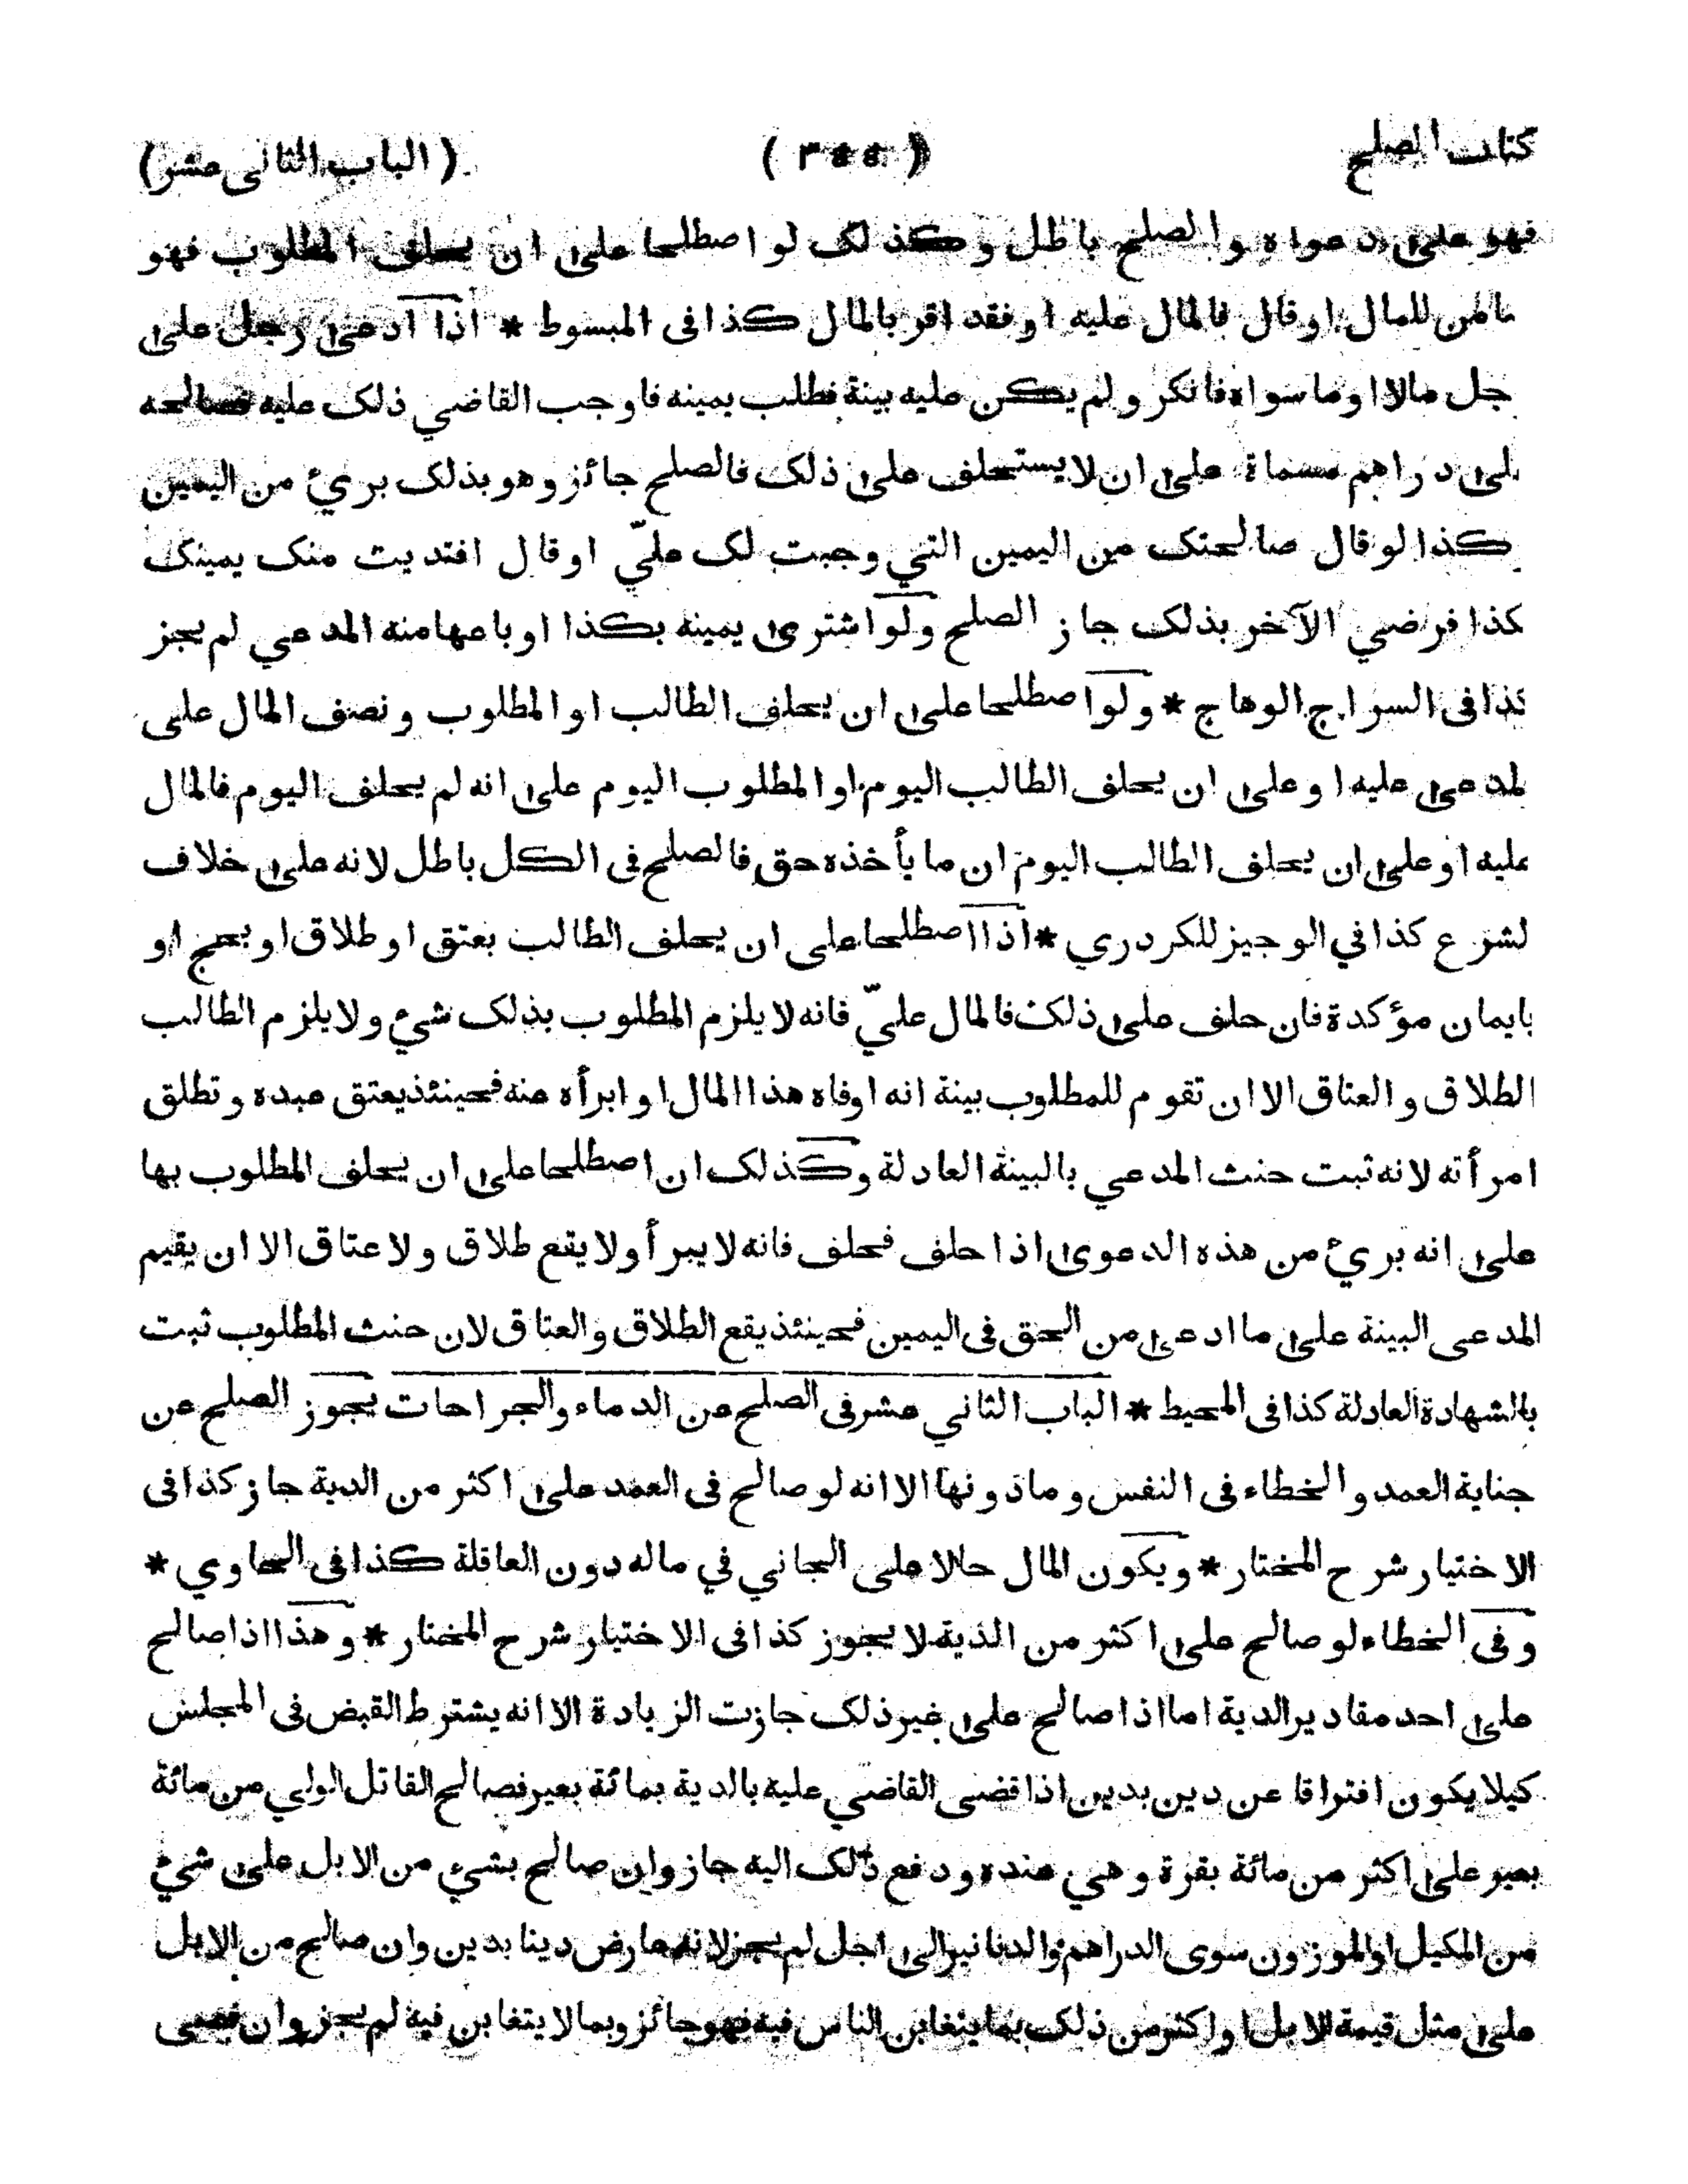 كتاب الصلح ( ) (الباب الثانى عشر)
فهو على دعواه والصلح باطل وكذلك لو اصطلحا على ان يحلف المطلوب فهو
ضامن للمال او قال فالمال عليه او فقد اقر بالمال كذا فى المبسوط * اذا ادعى رجل على
جل مالا او ما سواه فانكر ولم يكن عليه بينة فطلب يمينه فاوجب القاضي ذلك عليه فصالحه
لى دراهم مسماة على ان لا يستحلف على ذلك فالصلح جائز وهو بذلك بريئ من اليمين
كذا لو قال صالحتك من اليمين التي وجبت لك عليّ او قال افتديت منك يمينك
كذا فرضي الآخر بذلك جاز الصلح ولو اشترى يمينه بكذا او باعها منه المدعي لم يجز
كذا فى السراج الوهاج * ولو اصطلحا على ان يحلف الطالب او المطلوب ونصف المال على
لمدعى عليه او على ان يحلف الطالب اليوم او المطلوب اليوم على انه لم يحلف اليوم فالمال
عليه او على ان يحلف الطالب اليوم ان ما يأخذه حق فالصلح فى الكل باطل لانه على خلاف
لشرع كذا في الوجيز للكردري * اذا اصطلحا على ان يحلف الطالب بعتق او طلاق او بحج او
بايمان مؤكدة فان حلف على ذلك فالمال عليّ فانه لا يلزم المطلوب بذلك شيئ ولا يلزم الطالب
الطلاق والعتاق الا ان تقوم للمطلوب بينة انه اوفاه هذا المال او ابرأه منه فحينئذ يعتق عبده وتطلق
امرأته لانه ثبت حنث المدعي بالبينة العادلة وكذلك ان اصطلحا على ان يحلف المطلوب بها
على انه بريئ من هذه الدعوى اذا حلف فحلف فانه لا يبرأ ولا يقع طلاق ولا عتاق الا ان يقيم
المدعى البينة على ما ادعى من الحق فى اليمين فحينئذ يقع الطلاق والعتاق لان حنث المطلوب ثبت
بالشهادة العادلة كذا فى المحيط * الباب الثاني عشر فى الصلح عن الدماء والجراحات يجوز الصلح عن
جناية العمد والخطاء فى النفس وما دونها الا انه لو صالح فى العمد على اكثر من الدية جاز كذا فى
الاختيار شرح المختار * ويكون المال حالا على الجاني في ماله دون العاقلة كذا فى الحاوي *
وفى الخطاء لو صالح على اكثر من الدية لا يجوز كذا فى الاختيار شرح المختار * وهذا اذا صالح
على احد مقادير الدية اما اذا صالح على غير ذلك جازت الزيادة الا انه يشترط القبض فى المجلس
كيلا يكون افتراقا عن دين بدين اذا قضى القاضي عليه بالدية بمائة بعير فصالح القاتل الولي من مائة
بعير على اكثر من مائة بقرة وهي عنده ودفع ذلك اليه جاز وان صالح بشيئ من الابل على شيئ
من المكيل او الموزون سوى الدراهم والدنانير الى اجل لم يجز لانه عارض دينا بدين وان صالح من الابل
على مثل قيمة الابل او اكثر من ذلك بما يتغابن الناس فيه فهو جائز وبما لا يتغابن فيه لم يجز وان قضى